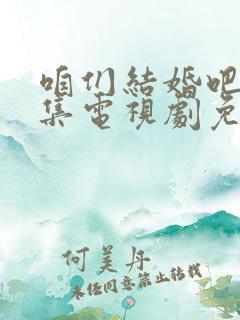 咱们結婚吧
集電視劇免
何美丹
未经同意禁止转载